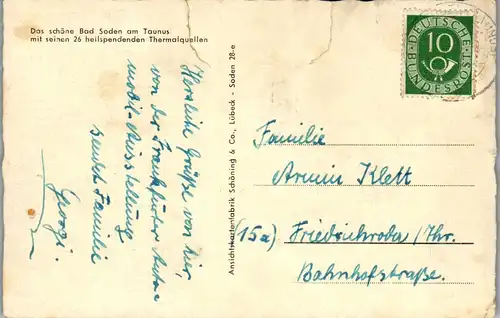 Das schöne Bad Soden am Taunus
mit seinen 26 heilspendenden Thermalquellen
Herzliche Grüße von hier,
von der Frankfurter Auto=
mobil-Ausstellung
sendet Familie
Georgi.
Ansichtskartenfabrik Schöning & Co., Lübeck - Soden 28-e
DEUTSCHE BUNDESPOST
10
Familie
Armin Klett
(15a) Friedrichroda/Thr.
Bahnhofstraße.